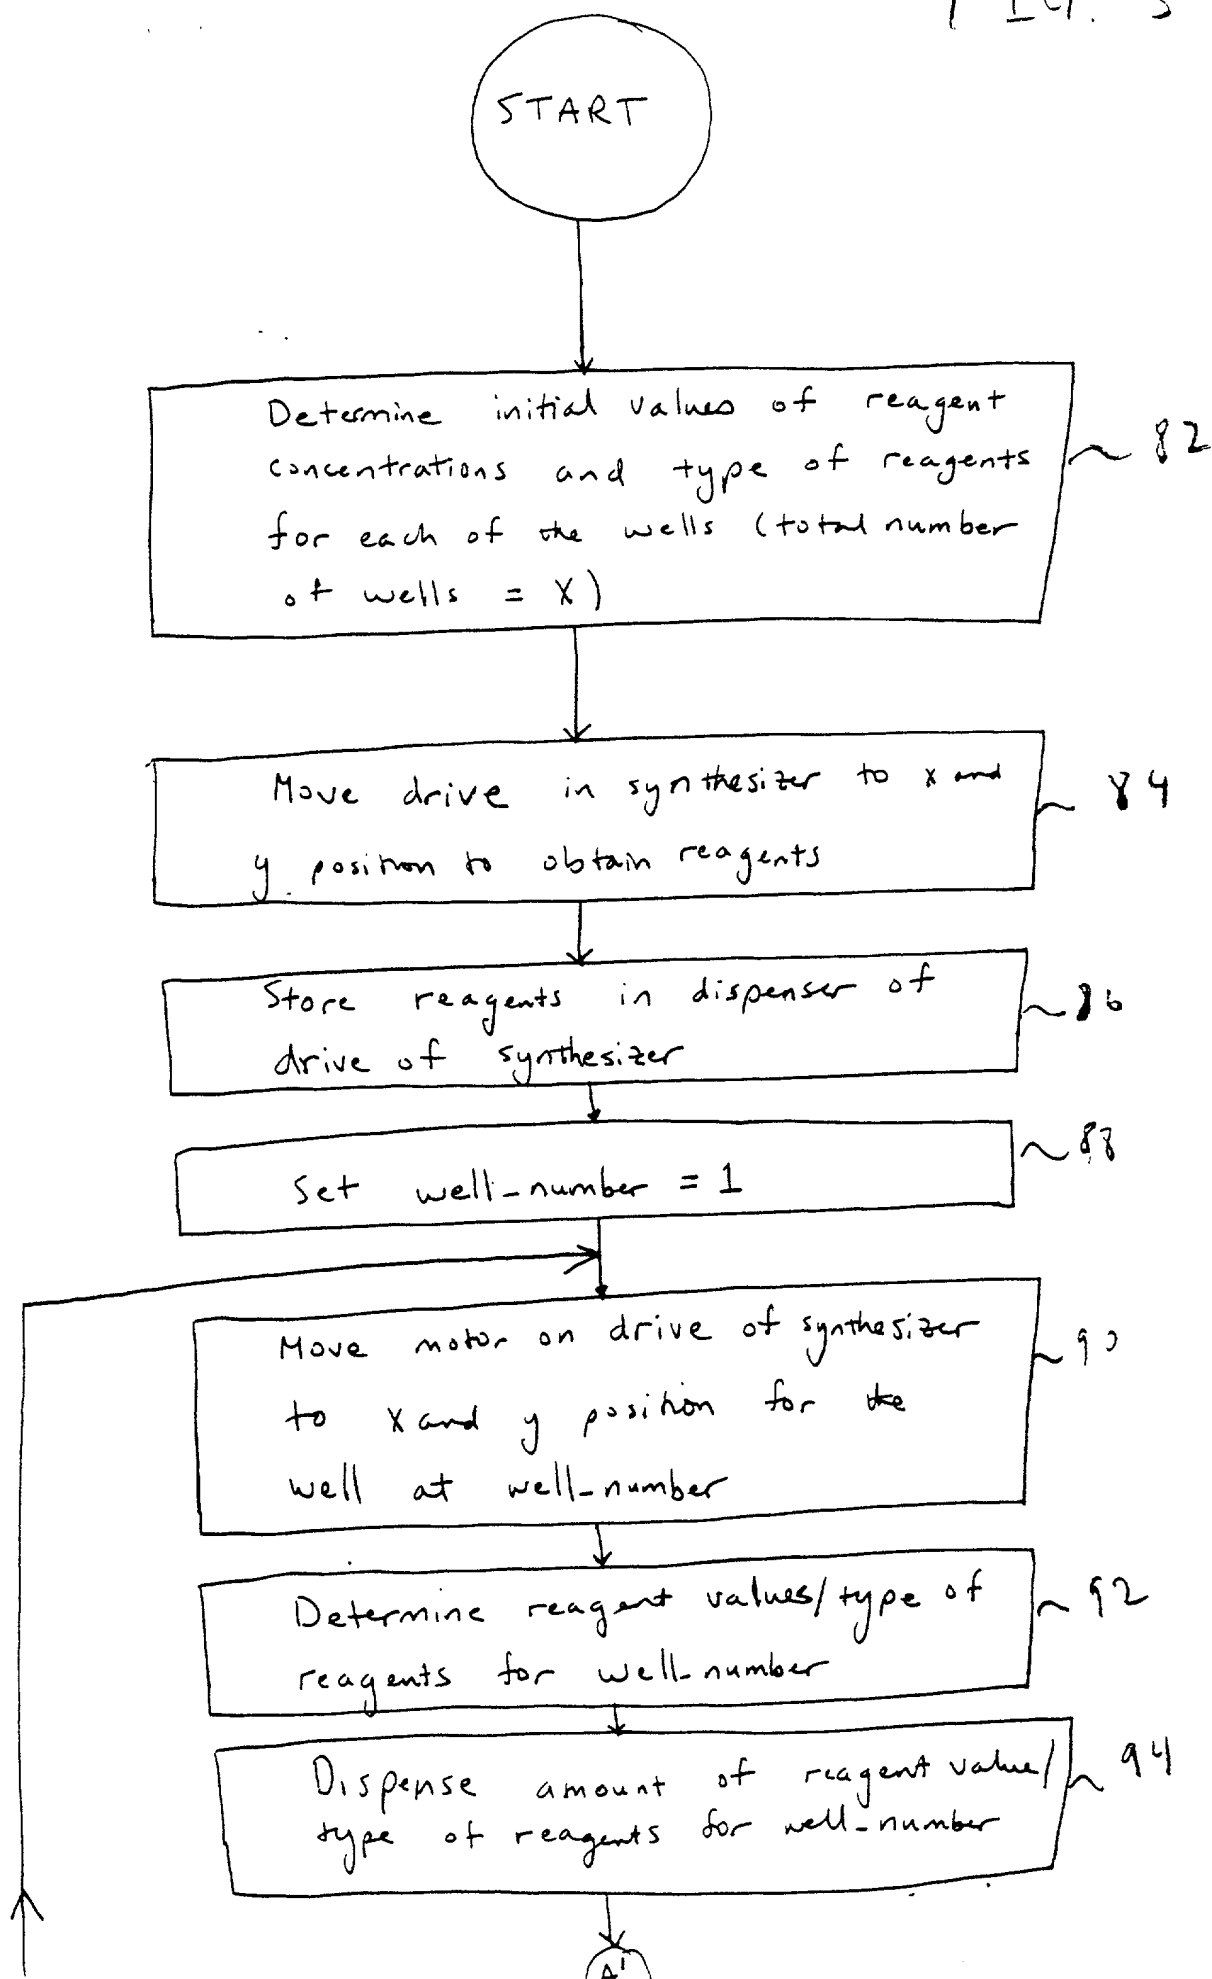 FIG. 3
START
Determine initial values of reagent
concentrations and type of reagents
for each of the wells (total number
of wells = X)
82
Move drive in synthesizer to x and
y position to obtain reagents
84
Store reagents in dispenser of
drive of synthesizer
86
88
Set well-number = 1
Move motor on drive of synthesizer
to x and y position for the
well at well-number
90
Determine reagent values/type of
reagents for well-number
92
Dispense amount of reagent value/
type of reagents for well-number
94
A'